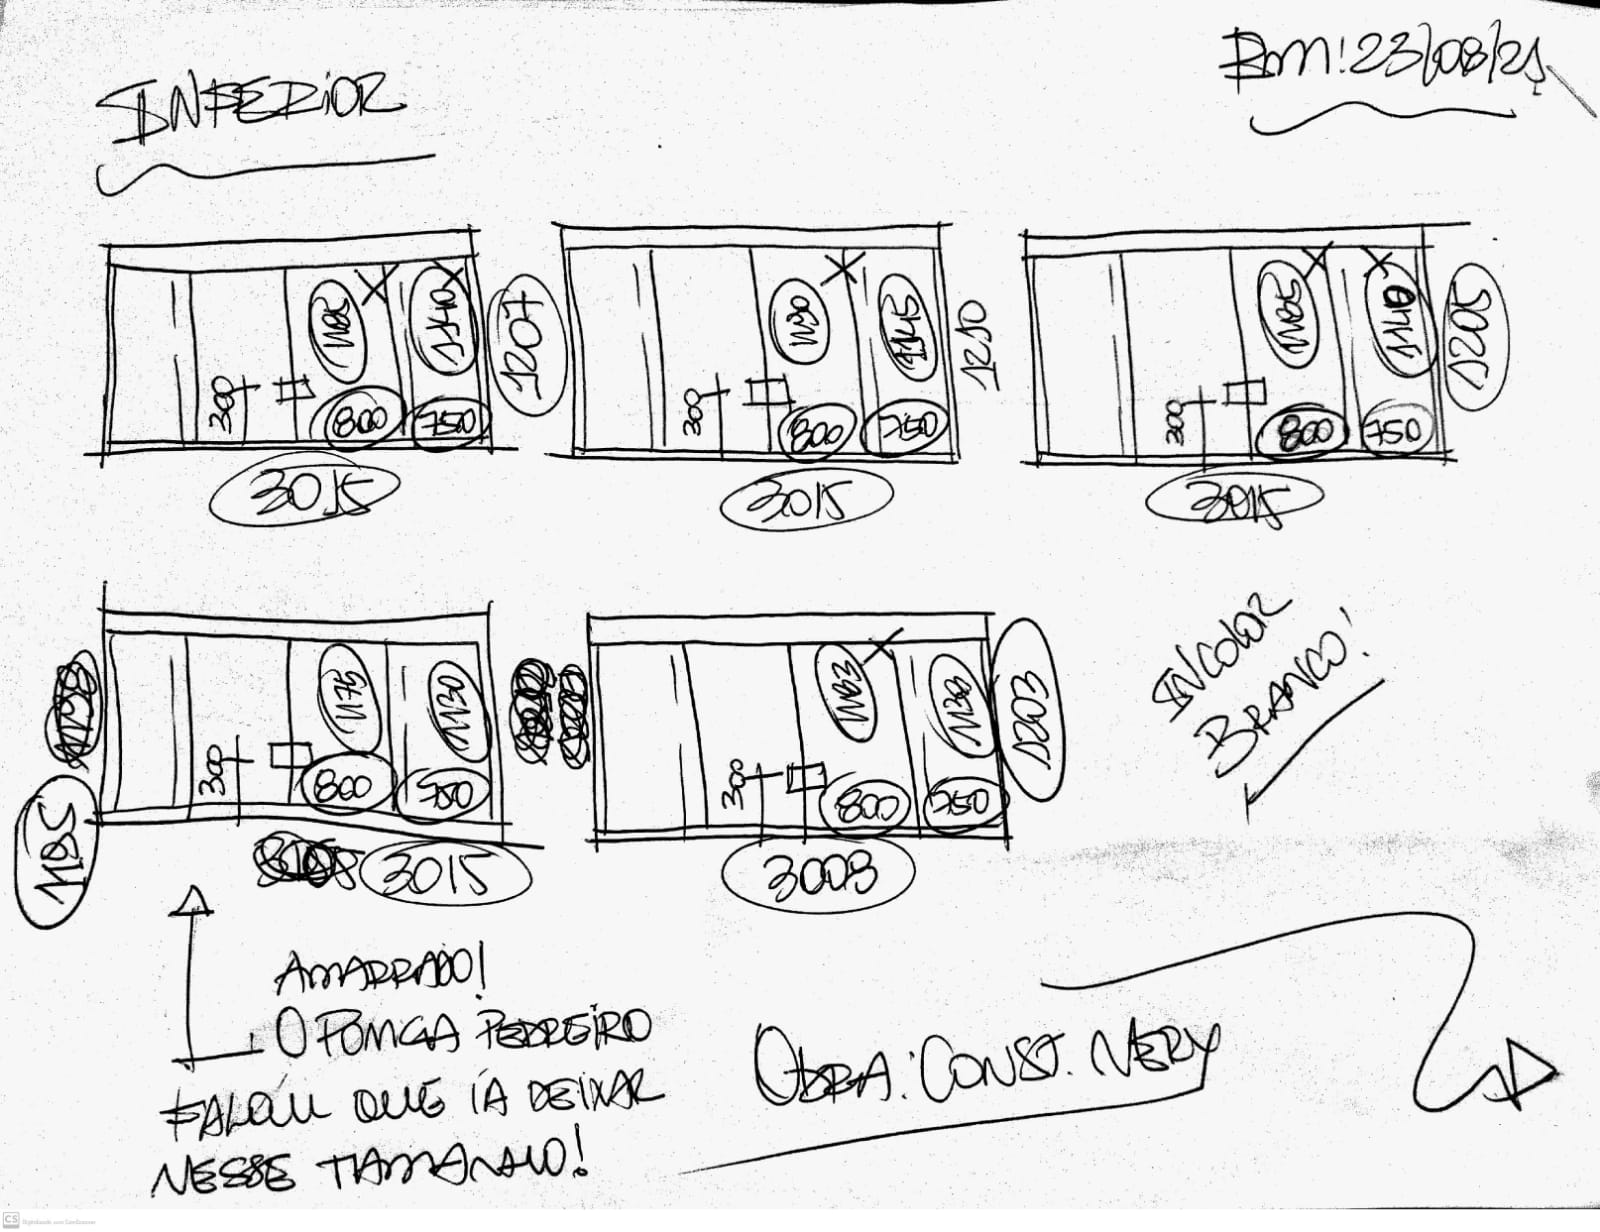 INFERIOR
Bm! 23/08/21
1185
1140
1207
300
800
750
3015
1190
1145
1210
300
800
750
3015
1185
1140
1205
300
800
750
3015
1175
1130
300
800
750
1195
3015
1183
1138
1203
300
800
750
3003
INCOLOR
BRANCO!
AMARRADO!
O PONGA PEDREIRO
FALOU QUE IA DEIXAR
NESSE TAMANHO!
OBRA: CONST. NERY
CS Digitalizado com CamScanner